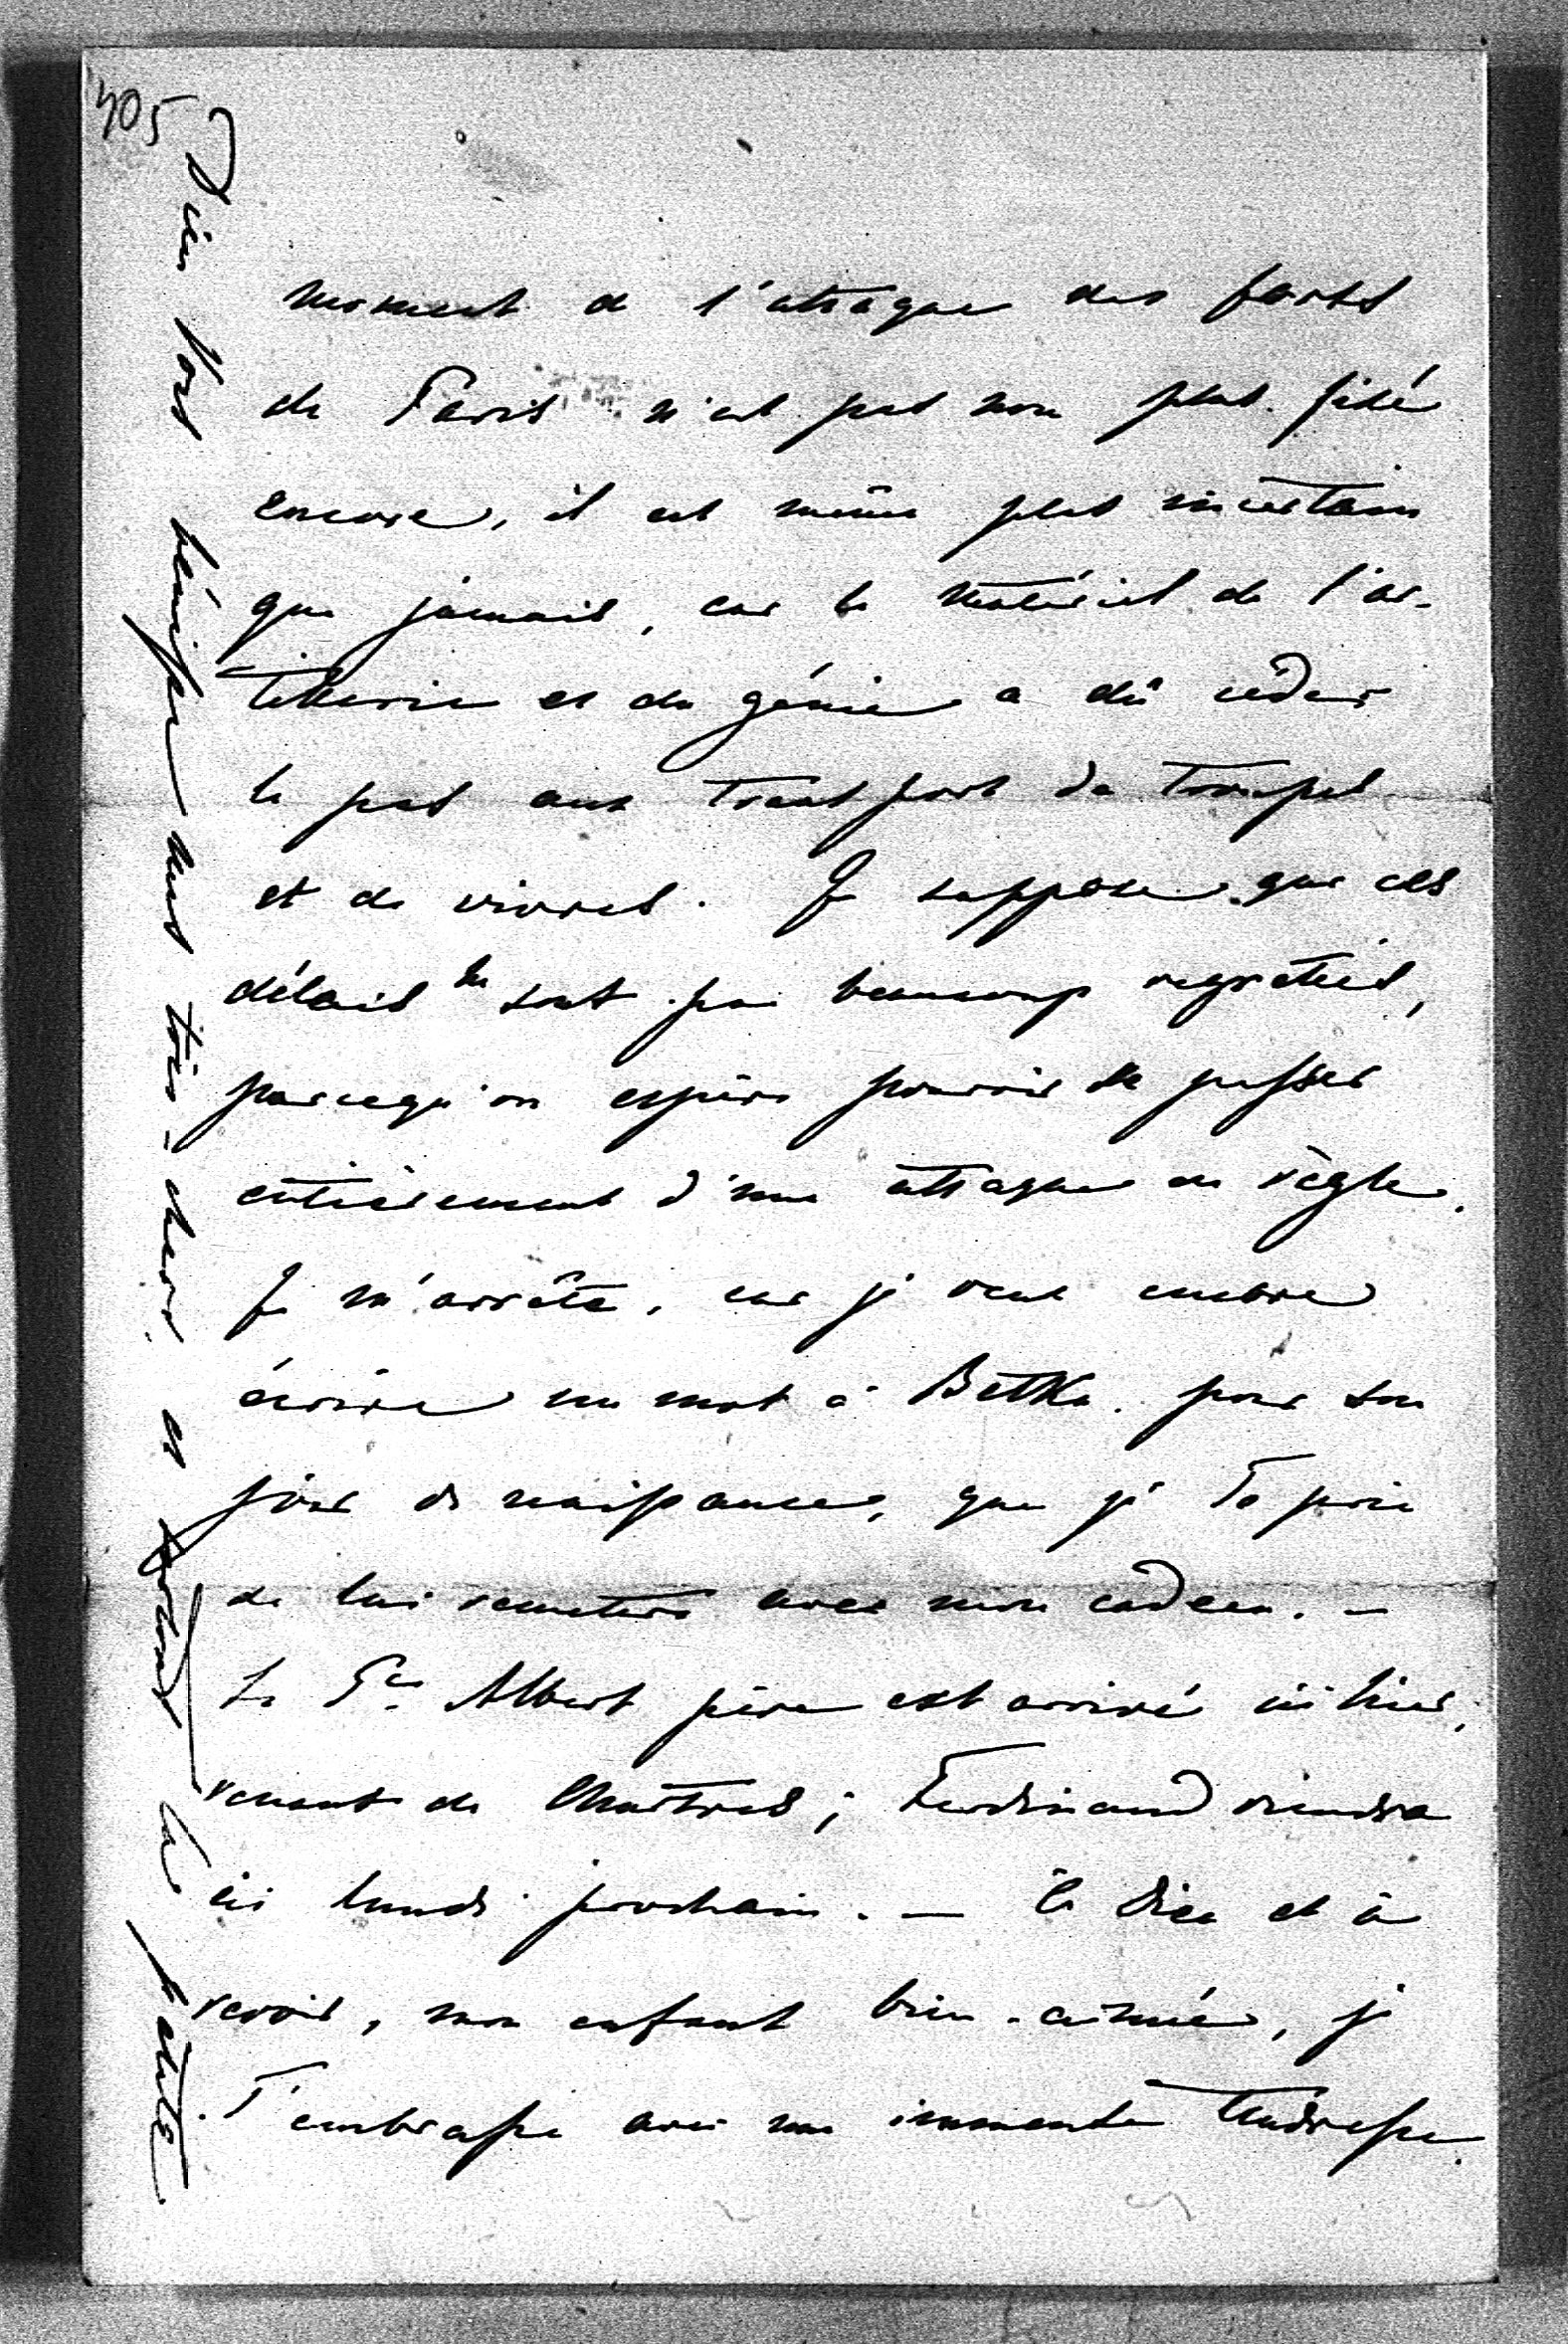 405
moment de l'attaque des forts
de Paris n'est pas non plus fixé
encore, il est même plus incertain
que jamais, car le matériel de l'ar-
tillerie et du génie a dû céder
le pas aux transport de troupes
et de vivres. Je suppose que ces
délais ne sont pas beaucoup regrettés,
parcequ'on espère pouvoir se passer
entièrement d'une attaque en règle.
Je m'arrête, car je veux encore
écrire un mot à Betka pour son
jour de naissance, que je Te prie
de lui remettre avec mon cadeau. –
Le Pce Albert père est arrivé ici hier,
venant de Chartres; Ferdinand viendra
ici lundi prochain. – à Dieu et à
revoir, mon enfant bien-aimé, je
T'embrasse avec une immense tendresse.
Dieu vous bénisse mes très-chers et la petite